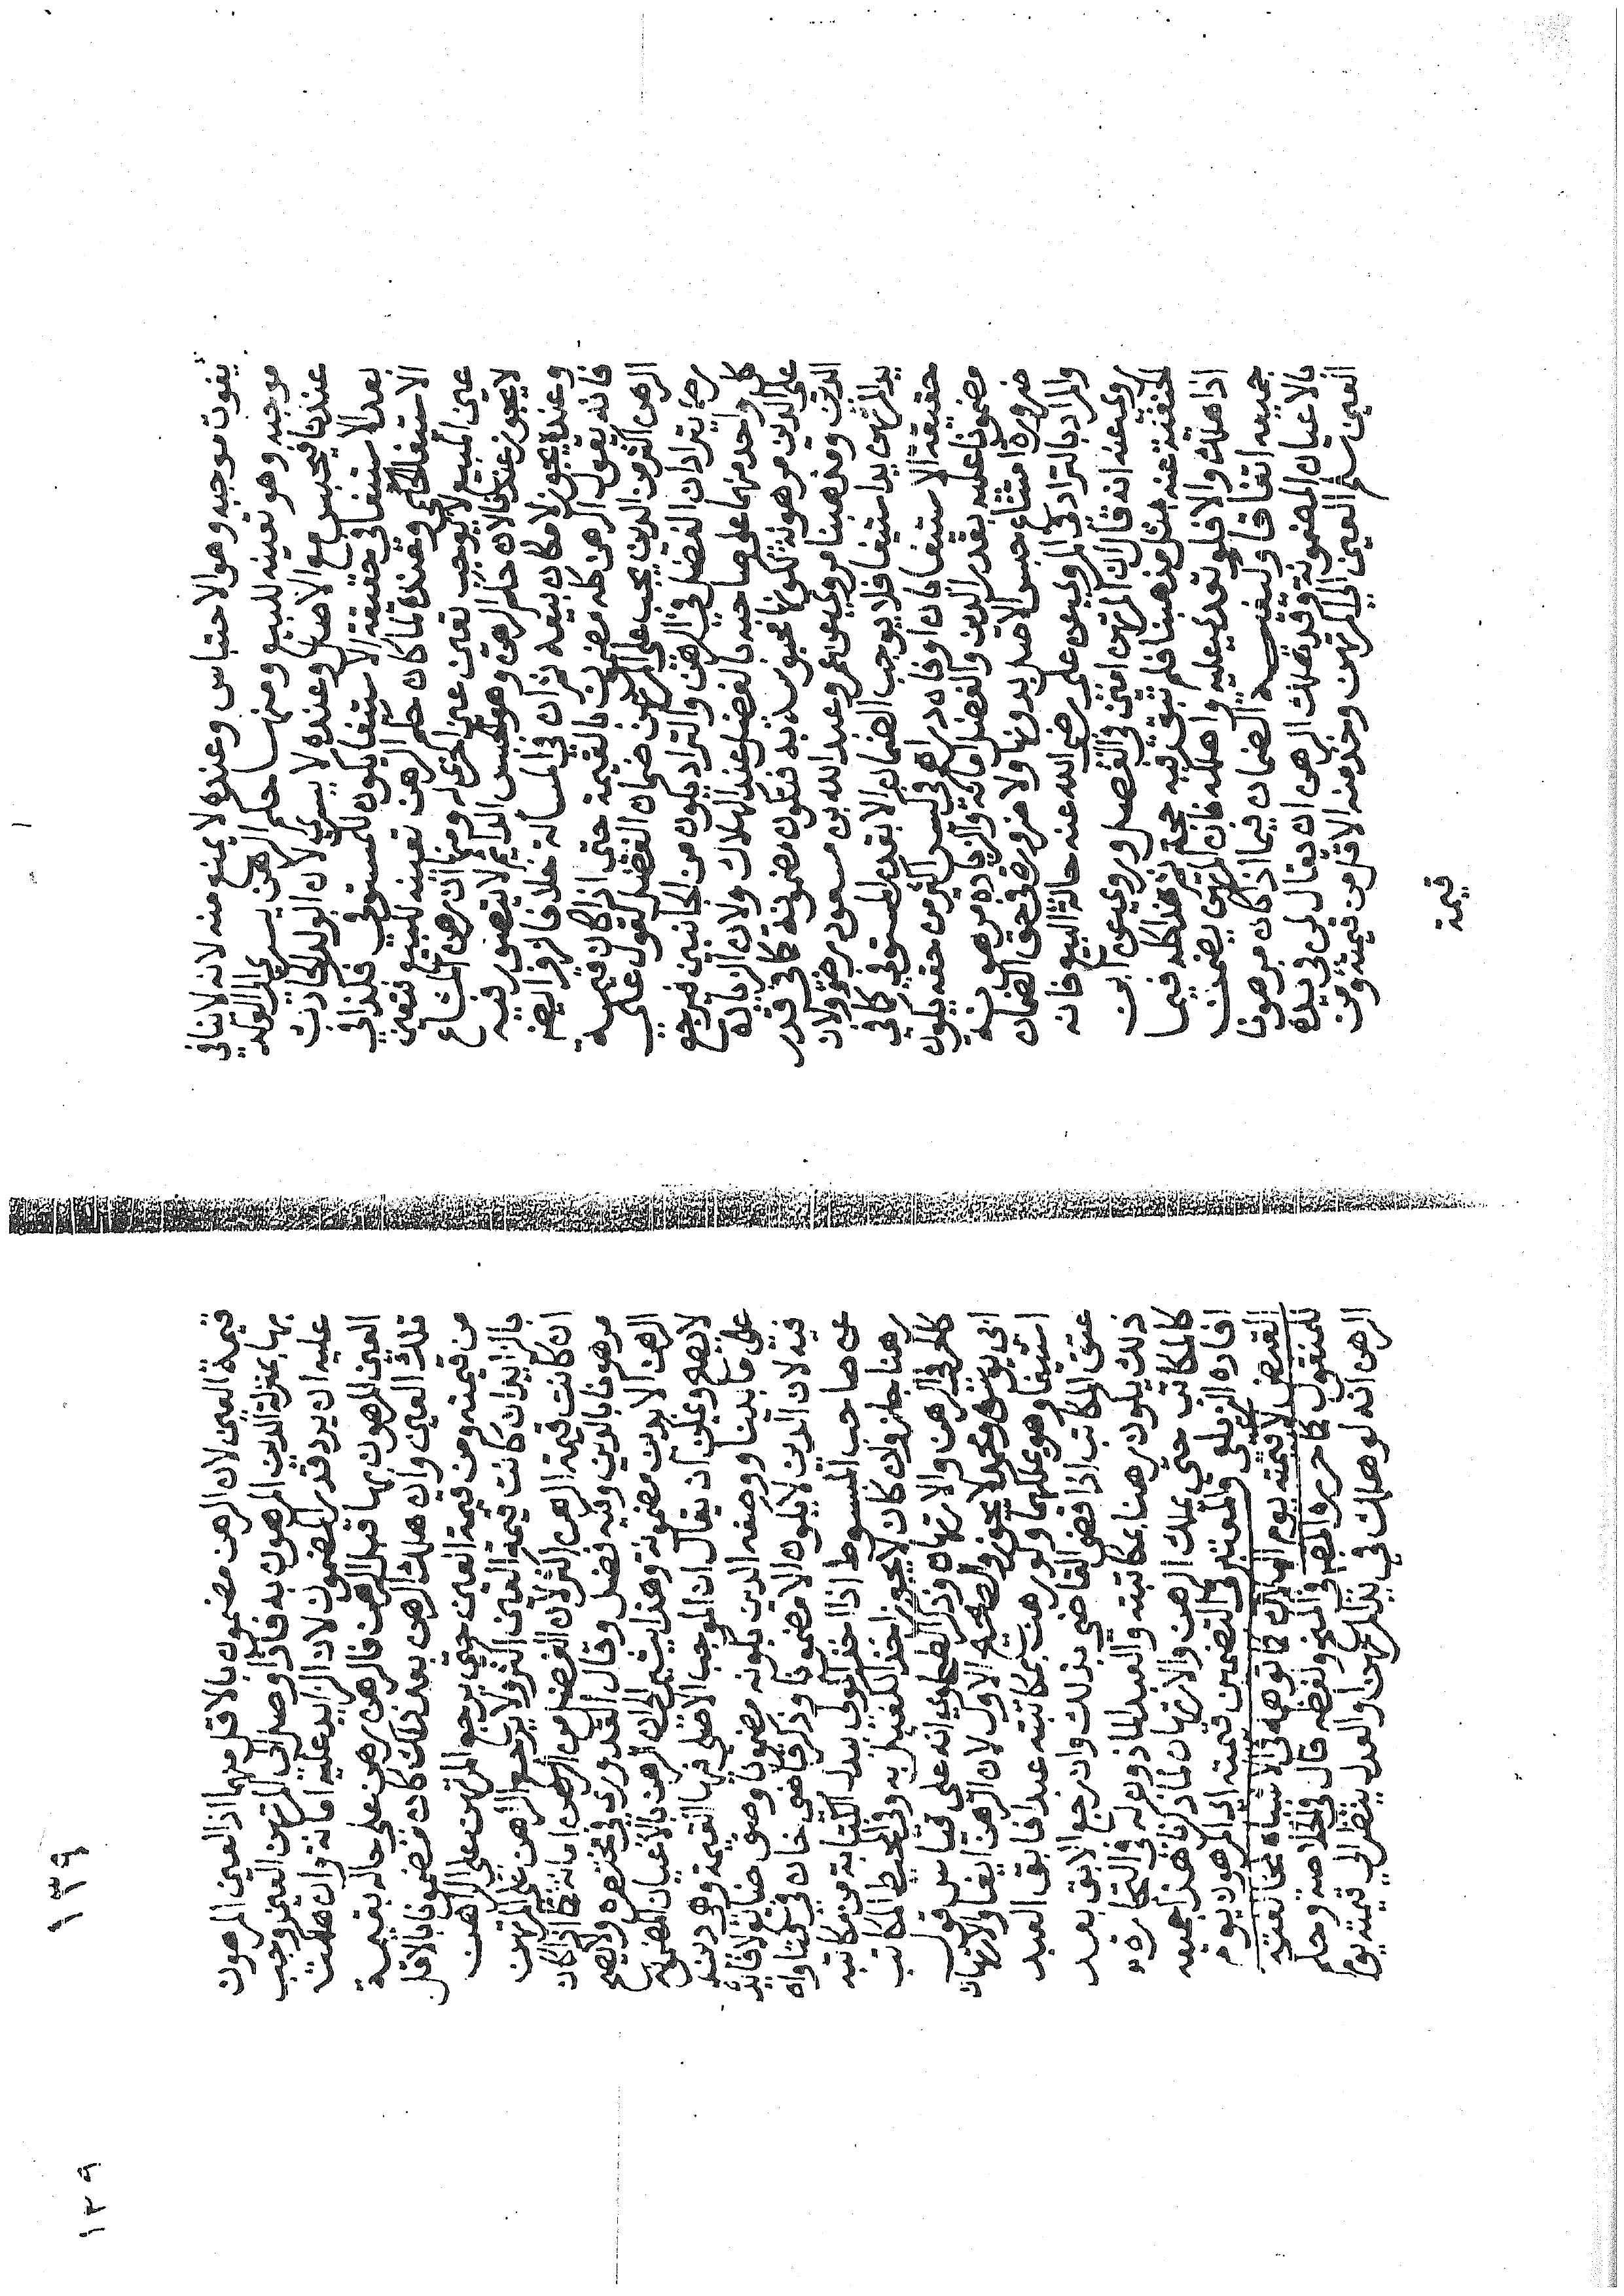 يفوت موجبه وهو الاحتباس وعنده لا يمنع منه لانه لاينافي
موجبه وهو تعينه للبيع ومنها حكم الرهن يسري الى الولد
عندنا فيحبس مع الاصل وعنده لا يسري لان الولد الحادث
بعد الاستيفا في حقيقة الاستيفا يكون للمستوفي فكذا في
الاستيفا الحكمي وعنده لما كان حكم الرهن تعينه للبيع فتعين
عين المبيع لا يوجب تعين عين اخر له ومنها ان رهن المشاع
لا يجوز عندنا لان حكم الرهن وهو الحبس الدايم لا يتصور فيه
وعنده يجوز لامكان بيعه ثم ان في المسالة خلافا لزفر ايضا
فانه يقول الرهن كله مضمون بالقيمة حتى اذا كان قيمة
الرهن اكثر من الدين يجب على المرتهن ضمان الفضل لقول علي
رضي يترادان الفضل في الرهن والتراد يكون من الجانبين فيرجع
كل واحد منهما على صاحبه بالفضل عند الهلاك ولان الزيادة
على الدين مرهونة لكونها محبوسة به فتكون مضمونة كما في قدر
الدين ومذهبنا مروي عن عمر وعبد الله بن مسعود رضي ولان
يد المرتهن يد استيفا فلا يوجب الضمان الا بقدر المستوفي كما في
حقيقة الاستيفا بان اوفاه دراهم في كيس اكثر من حقه يكون
مضمونا عليه بقدر الدين والفضل امانة والزيادة مرهونة
ضرورة امتناع حبس الاصل بدونها ولا ضرورة في حق الضمان
والمراد بالتراد في المروي عن علي رضي الله عنه حالة البيع فانه
روي عنه انه قال ان المرتهن امين في الفضل وروي عن ابن
الحنفية عنه مثل مذهبنا فلم تبق فيه حجة ثم هذا كله فيما
اذا هلك والا فلو تعدى عليه واهلكه فان المرتهن يضمن
جميعه اتفاقا الضمان فيما اذا كان مرهونا
بالاعيان المضمونة وقد الرهن ان يقال لمن في يده
العين سلم العين الى المرتهن وخذ منه الاقل من قيمته ومن
قيمة
١٣٩
قيمة العين لان الرهن مضمون بالاقل منهما اذ العين المرهون
بها بمنزلة الدين المرهون به فاذا وصل الى المرتهن العين وجب
عليه ان يرد قدر المضمون لان الزايد عليه امانة وان هلكت
العين المرهون بها قبل الرهن فالرهن رهن على حاله بقيمة
تلك العين وان هلك الرهن بعد ذلك كان مضمونا بالاقل
من قيمته ومن قيمة العين حتى يرجع المرتهن على الراهن
بالزايد ان كانت قيمة العين اكثر ولا يرجع الراهن على المرتهن
ان كانت قيمة الرهن اكثر لان الفضل من الرهن امانة كما اذا كان
مرهونا بالدين وفيه فضل وقال القدوري في مختصره ولا يصح
الرهن الا بدين مضمون وهذا يشير الى ان الرهن بالاعيان المضمونة
لا يصح ويمكن ان يقال ان الموجب الاصلي فيها القيمة وهي دين
على ما بينا ووصفه الدين بكونه مضمونا وصف ضايع لا فايدة
فيه لان الدين لا يكون الا مضمونا وذكر قاضي خان في فتاواه
عن صاحب المبسوط اذا اخذ المولى ببدل الكتابة من مكاتبه
رهنا جاز وان كان لا يجوز اخذ الكفيل به وفي المحيط المكاتب
كالحر في الرهن والارتهان وذكر الطحاوي انه على قياس قول
ابي يوسف ومحمد لا يجوز والصحيح الاول لان الرهن ايفا والارتهان
استيفا وهو يملكهما ولو رهن بمكاتبته عبدا فابق العبد
عتق المكاتب اذا قضى القاضي بذلك وان رجع الابق بعد
ذلك يكون رهنا بمكاتبته والعبد الماذون له في التجارة
كالمكاتب حتى يملك الرهن والارتهان لما ذكرنا هذا جميعه
افاده الزيلعي والمعتبر في التضمين قيمته اي المرهون يوم
القبض لا قيمته يوم الهلاك كما توهمه في الاشباه لمخالفته
للمنقول كما حرره المص في المنح ولفظه قال في الخلاصة وحكم
الرهن انه لو هلك في يد المرتهن او العدل ينظر الى قيمته يوم
١٣٩